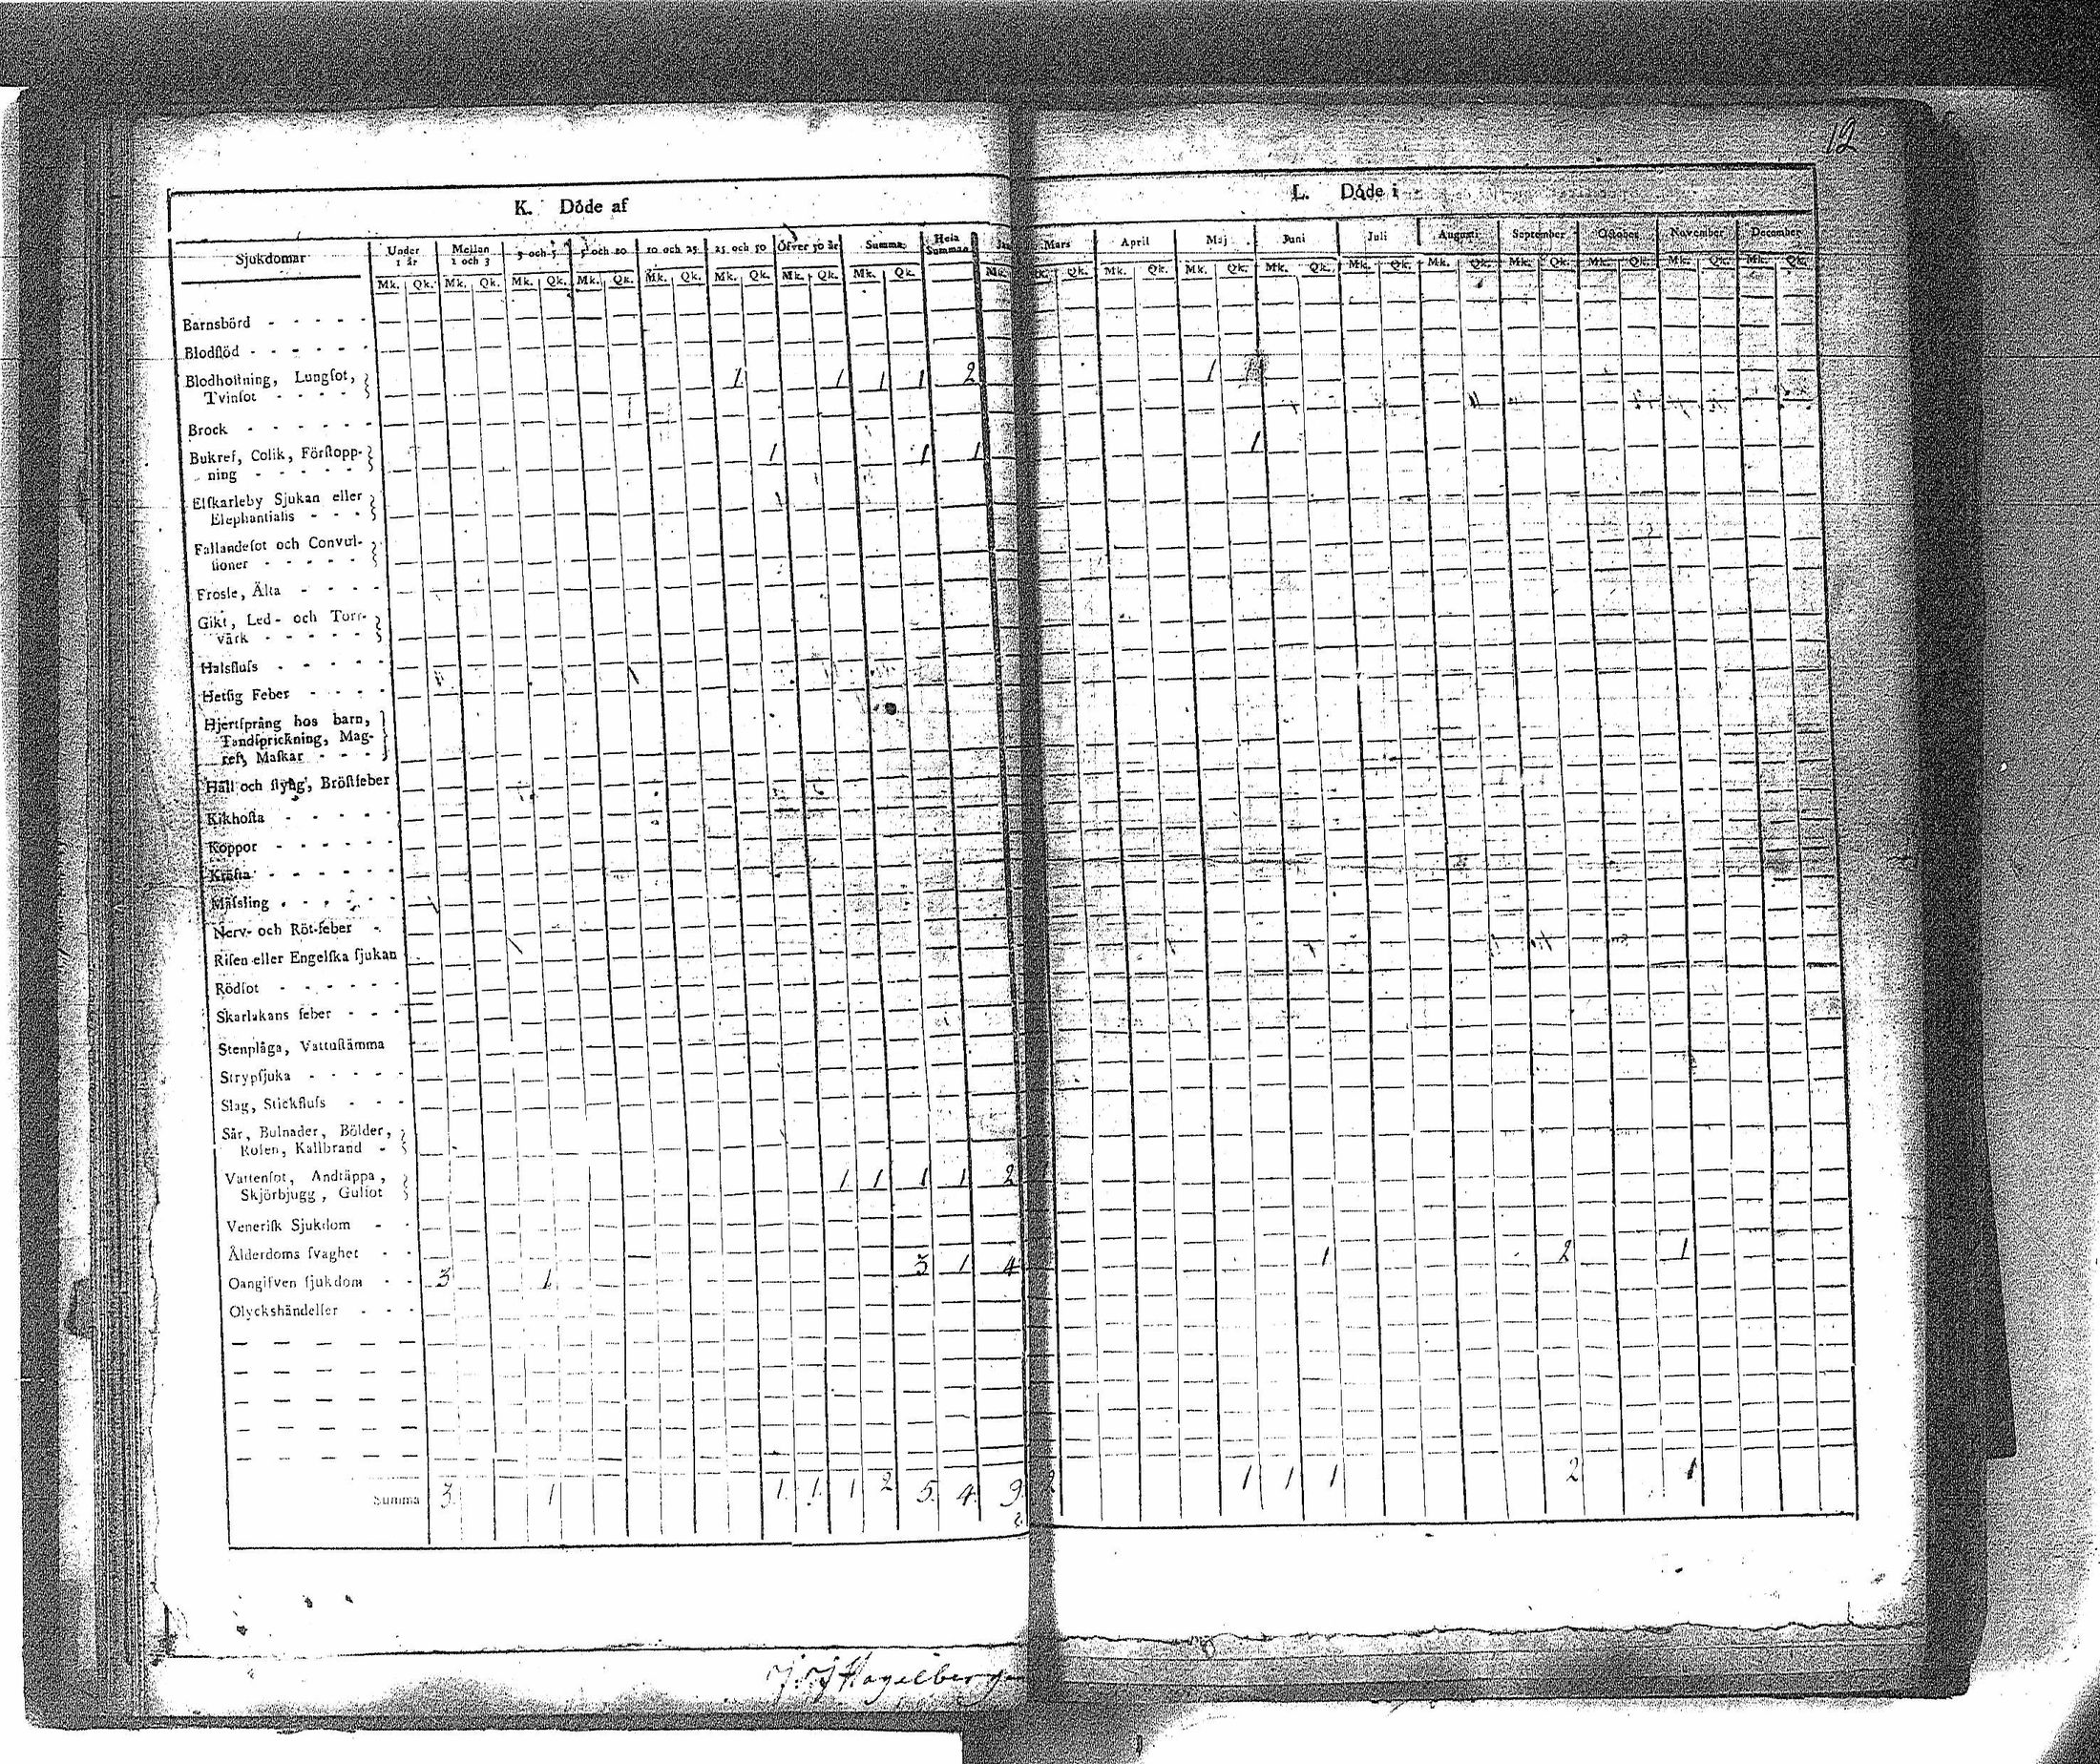 12
K. Döde af
L. Döde i
Sjukdomar
Under 1 år
Mellan 1 och 3
3 och 5
5 och 10
10 och 25
25 och 50
Öfver 50 år
Summa
Hela Summan
Mars
April
Maj
Juni
Juli
Augusti
September
October
November
December
Mk. Qk. Mk. Qk. Mk. Qk. Mk. Qk. Mk. Qk. Mk. Qk. Mk. Qk. Mk. Qk.
Qk. Mk. Qk. Mk. Qk. Mk. Qk. Mk. Qk. Mk. Qk. Mk. Qk. Mk. Qk. Mk. Qk. Mk. Qk.
Barnsbörd - - - - -
Blodflöd - - - - - -
Blodhostning, Lungſot, 1 1 1 1 2 1
Tvinſot - - - -
Brock - - - - - -
Bukref, Colik, Förſtopp- 1 1 1 1
ning - - - - -
Elſkarleby Sjukan eller
Elephantiaſis - - -
Fallandeſot och Convul-
ſioner - - - - -
Frosſe, Älta - - - -
Gikt, Led- och Torr-
värk - - - - -
Halsfluſs - - - - -
Hetſig Feber - - - -
Hjertſprång hos barn,
Tandſprickning, Mag-
ref, Maſkar - - -
Håll och ſtyng, Bröſtfeber
Kikhoſta - - - - -
Koppor - - - - - -
Kräfta - - - - - -
Mäſsling - - - - -
Nerv- och Röt-feber -
Riſen eller Engelſka ſjukan
Rödſot - - - - - -
Skarlakans feber - - -
Stenplåga, Vattuſtämma
Strypſjuka - - - - -
Slag, Stickfluſs - - -
Sår, Bulnader, Bölder,
Roſen, Kallbrand -
Vattenſot, Andtäppa, 1 1 1 1 2
Skjörbjugg, Gulſot
Veneriſk Sjukdom - -
Ålderdoms ſvaghet - -
Oangifven ſjukdom - - 3 1 3 1 4 1 2 1
Olyckshändelſer - - -
Summa 3 1 1 1 1 2 5 4 9 2 1 1 1 2 1